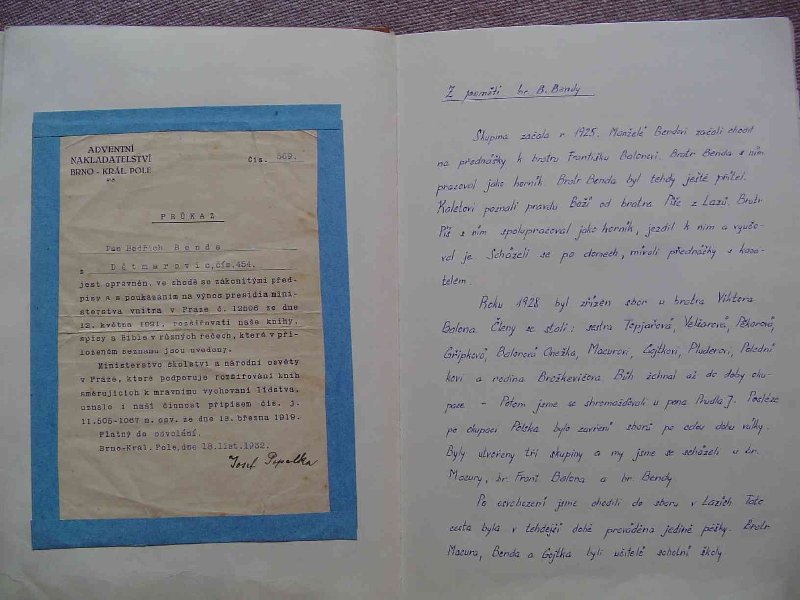 ADVENTNÍ
NAKLADATELSTVÍ
BRNO - KRÁL. POLE
Čís. 569.
PRŮKAZ
Pan Bedřich Benda
z Dětmarovic, čís. 454.
jest oprávněn, ve shodě se zákonitými před-
pisy a s poukázáním na výnos presidia mini-
sterstva vnitra v Praze č. 12506 ze dne
12. května 1921, rozšiřovati naše knihy,
spisy a Bible v různých řečech, které v při-
loženém seznamu jsou uvedeny.
Ministerstvo školství a národní osvěty
v Praze, které podporuje rozšiřování knih
směřujících k mravnímu vychování lidstva,
uznalo i naši činnost přípisem čís. j.
11.505-1067 n. osv. ze dne 13. března 1919.
Platný do odvolání.
Brno-Král. Pole, dne 18. list. 1932.
Josef
Z pamětí br. B. Bendy
Skupina začala r 1925. Manželé Bendovi začali chodit
na přednášky k bratru Františku Balonovi. Bratr Benda s ním
pracoval jako horník. Bratr Benda byl tehdy ještě přítel.
Kaletovi poznali pravdu Boží od bratra Píše z Lazů. Bratr
Píš s ním spolupracoval jako horník, jezdil k nim a vyučo-
val je. Scházeli se po domech, mívali přednášky s kaza-
telem.
Roku 1928 byl zřízen sbor u bratra Viktora
Balona. Členy se stali: sestra Topjařová, Pěkarová,
Gřipková, Balonová Anežka, Macurovi, Gojtkovi, Pluderovi, Polední
kovi a rodina Brožkevičova. Bůh žehnal až do doby oku-
pace - Potom jsme se shromažďovali u pana Prudla J. Posléze
po okupaci Polska bylo zavření sborů po celou dobu války.
Byly utvořeny tři skupiny a my jsme se scházeli u br.
Macury, br. Frant Balona a br. Bendy
Po osvobození jsme chodili do sboru v Lazích Tato
cesta byla v tehdejší době prováděna jedině pěšky. Bratr
Macura, Benda a Gojtka byli učitelé sobotní školy.